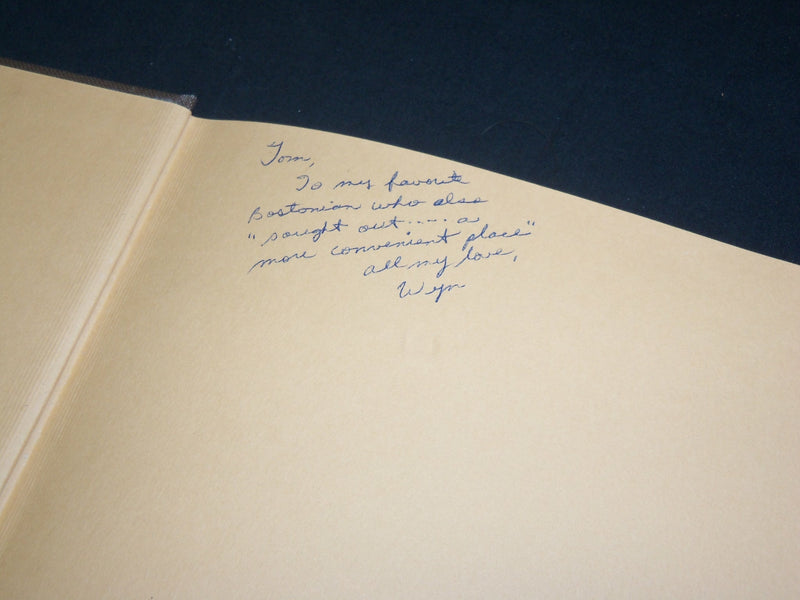 Tom,
To my favorite
Bostonian who also
"sought out..... a
more convenient place"
all my love,
Wyn